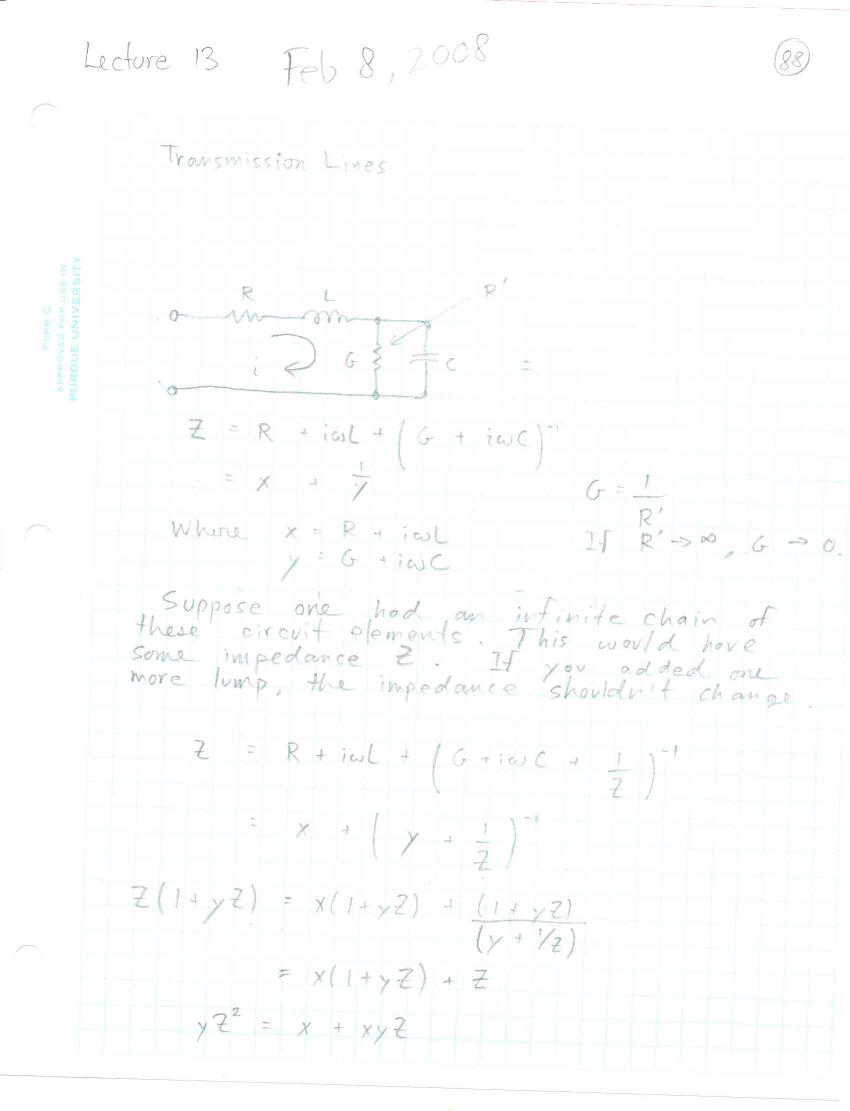 Lecture 13 Feb 8, 2008 88
Transmission Lines
FORM C
APPROVED FOR USE IN
PURDUE UNIVERSITY
R L R'
i G C =
Z = R + iωL + (G + iωC)⁻¹
= x + 1/y
G = 1/R'
Where x = R + iωL
If R' → ∞, G → 0.
y = G + iωC
Suppose one had an infinite chain of
these circuit elements. This would have
some impedance Z. If you added one
more lump, the impedance shouldn't change.
Z = R + iωL + (G + iωC + 1/Z)⁻¹
= x + (y + 1/Z)⁻¹
Z(1+yZ) = x(1+yZ) + (1+yZ)/(y + 1/Z)
= x(1+yZ) + Z
yZ² = x + xyZ